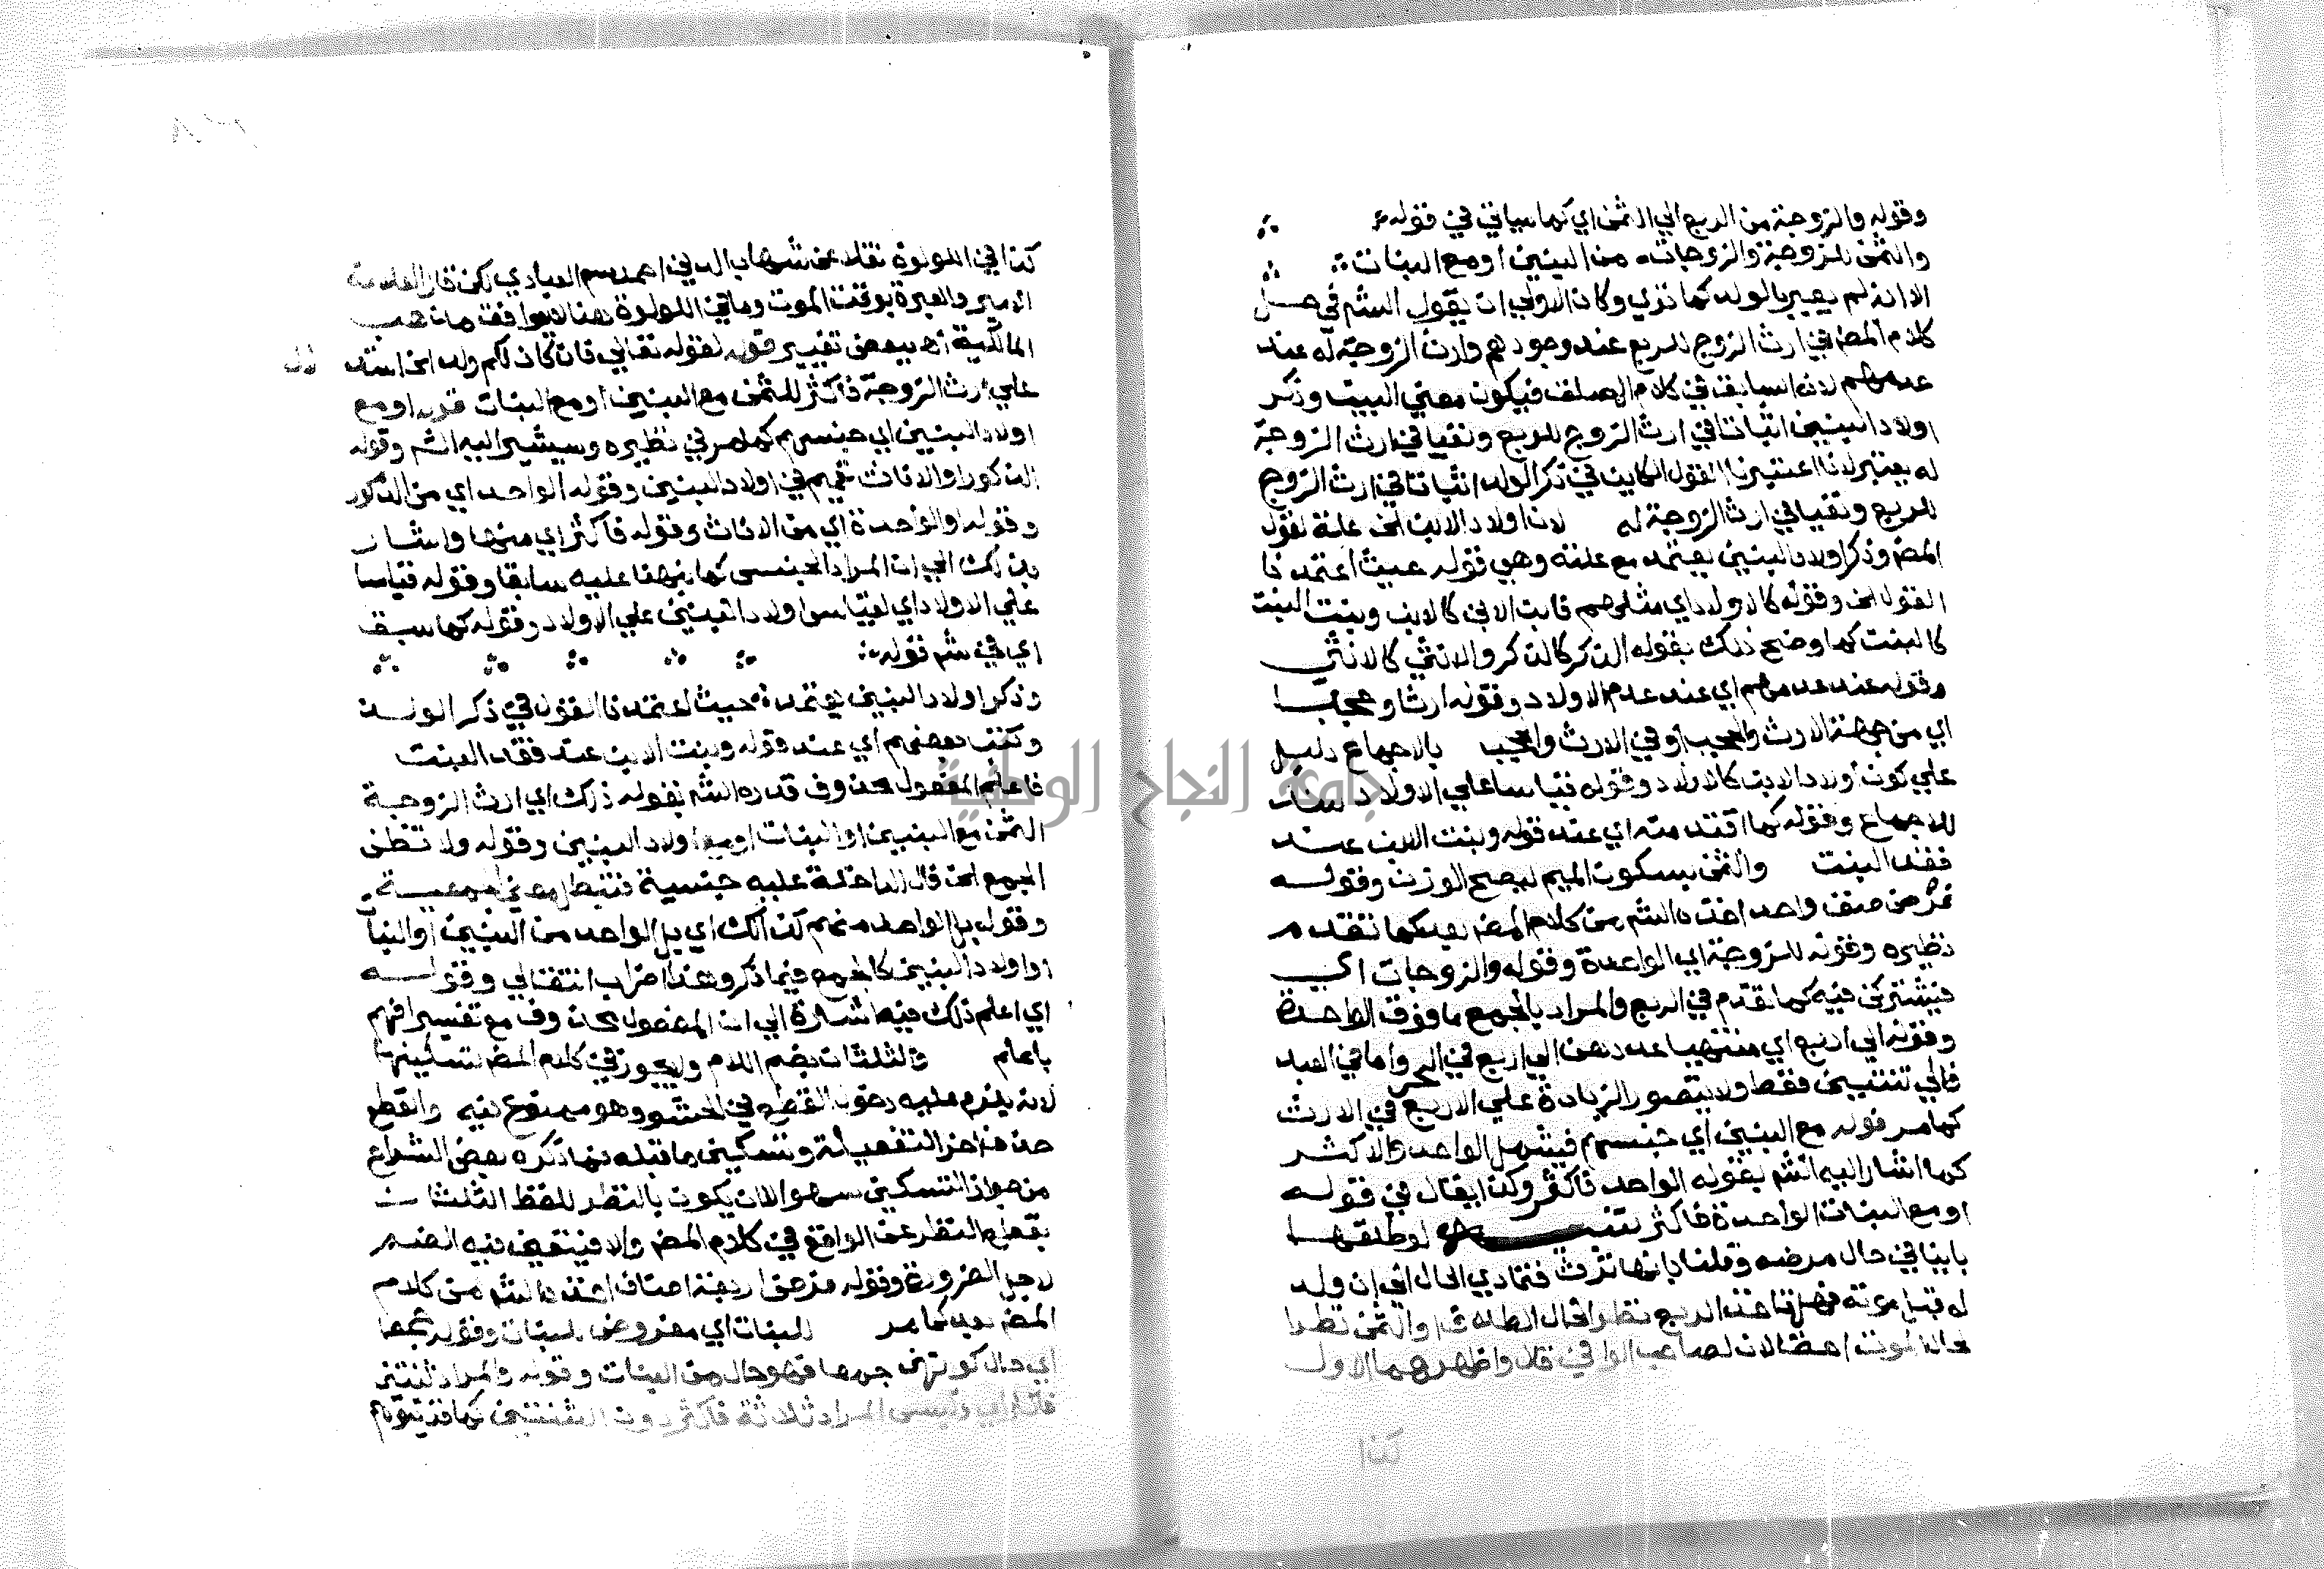 وقوله والزوجة من الربع الي الثمن اي كما سياتي في قوله
والثمن للزوجة والزوجات مع البنين او مع البنات
الا انه لم يعبر بالولد كما تري وكان الاولي ان يقول الشم في حل
كلام المض في ارث الزوج للربع عند وجودهم وارث الزوجة له عند
عدمهم لانه السابق في كلام المصنف فيكون معني البيت وذكر
اولاد البنين اثباتا في ارث الزوج للربع ونفيا في ارث الزوجة
له يعتبر لانا اعتبرنا القول الكاين في ذكر الولد اثباتا في ارث الزوج
للربع ونفيا في ارث الزوجة له لان اولاد الابن الخ علة لقول
المض وذكر اولاد البنين يعتمد مع علته وهي قوله حيث اعتمدنا
القول الخ وقوله كالاولاد اي مثلهم فابن الابن كالابن وبنت البنت
كالبنت كما وضح ذلك بقوله الذكر كالذكر والانثي كالانثي
وقوله عند عدمهم اي عند عدم الاولاد وقوله ارثا وحجبا
اي من جهة الارث والحجب او في الارث والحجب بالاجماع دليل
علي كون اولاد الابن كالاولاد وقوله قياسا علي الاولاد سند
للاجماع وقوله كما قدمته اي عند قوله وبنت الابن عند
فقد البنت والثمن بسكون الميم ليصح الوزن وقوله
فرض صنف واحد اخذه الشم من كلام المض بعد كما تقدم
نظيره وقوله للزوجة اي الواحدة وقوله والزوجات اي
فيشتركن فيه كما تقدم في الربع والمراد بالجمع ما فوق الواحدة
وقوله الي اربع اي منتهيا عددهن الي اربع في الحر واما في العبد
فالي ثنتين فقط ولا يتصور الزيادة علي الاربع في الارث
كما مر قوله مع البنين اي جنسهم فيشمل الواحد والاكثر
كما اشار اليه الشم بقوله الواحد فاكثر وكذا يقال في قوله
او مع البنات الواحدة فاكثر تنبيه لو طلقها
باينا في حال مرضه وقلنا بانها ترث فتمادي الحال الي ان ولد
له قبل موته فهل تاخذ الربع نظرا لحال الطلاق او الثمن نظرا
لحال الموت احتمالان لصاحب الوافي قال واظهرهما الاول
كذا
كذا في اللولوة نقلا عن شهاب الدين احمد بن قاسم العبادي لكن قال العلامة
الامير والعبرة بوقت الموت وما في اللولوة هنا لا يوافق مذهب
المالكية اه ببعض تغيير قوله لقوله تعالي فان كان لكم ولد الخ استدل
علي ارث الزوجة فاكثر للثمن مع البنين او مع البنات قوله او مع
اولاد البنين اي جنسهم كما مر في نظيره وسيشير اليه الشم وقوله
الذكور او الاناث تعميم في اولاد البنين وقوله الواحد اي من الذكور
وقوله او الواحدة اي من الاناث وقوله فاكثر اي منهما واشار
بذلك الي ان المراد الجنس كما نبهنا عليه سابقا وقوله قياسا
علي الاولاد اي لقياس اولاد البنين علي الاولاد وقوله كما سبق
اي في شم قوله
وذكر اولاد البنين يعتمد حيث اعتمدنا القول في ذكر الولد
وكتب بعضهم اي عند قوله وبنت الابن عند فقد البنت
فاعلم المفعول محذوف قدره الشم بقوله ذلك اي ارث الزوجة
الثمن مع البنين او البنات او مع اولاد البنين وقوله ولا تظن
الجمع الخ فال الداخلة عليه جنسية فتبطل معني الجمعية
وقوله بل الواحد منهم كذلك اي بل الواحد من البنين او البنات
او اولاد البنين كالجمع فيما ذكر وهذا اضراب انتقالي وقوله
اي اعلم ذلك فيه اشارة الي ان المفعول محذوف مع تفسير افهم
باعلم والثلثان بضم اللام ولا يجوز في كلام المض تسكينها
لانه يلزم عليه دخول القطع في الحشو وهو ممنوع فيه والقطع
حذف اخر التفعيلة وتسكين ما قبله فما ذكره بعض الشراح
من جواز التسكين سهو الا ان يكون بالنظر للفظ الثلثان
بقطع النظر عن الواقع في كلام المض والا فيتعين فيه الضم
لاجل الضرورة وقوله فرض اربعة اصناف اخذه الشم من كلام
المض بعد كما مر للبنات اي مفروض للبنات وقوله جمعا
اي حال كونهن جمعا فهو حال من البنات وقوله والمراد ثنتين
فاكثر اي وليس المراد ثلاثة فاكثر دون الثنتين كما قد يتوهم